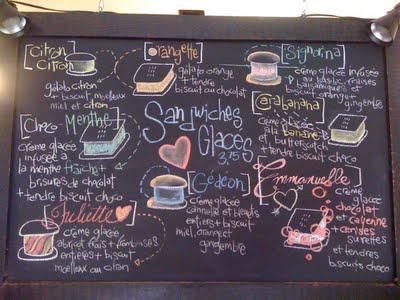 Sandwiches
Glacés
3.75
Citron
Citron
gelato citron
+ biscuit moelleux
miel et citron
Orangette
gelato orange
+ tendre
biscuit au chocolat
Signorina
crème glacée infusée
au basilic, fraises
balsamiques et
biscuit orange
gingembre
Choco Menthe
crème glacée
infusée à
la menthe fraîche +
brisures de chocolat
+ tendre biscuit choco
Carabanana
crème glacée
à la banane
et butterscotch
+ tendre
biscuit choco
Gédéon
crème glacée
cannelle et bleuets
entiers + biscuit
miel, orange et
gingembre
Emmanuelle
crème
glacée
chocolat
et cayenne
+ cerises
surettes
et tendres
biscuits choco
Juliette
crème glacée
abricot frais + framboises
entières + biscuit
moelleux au citron